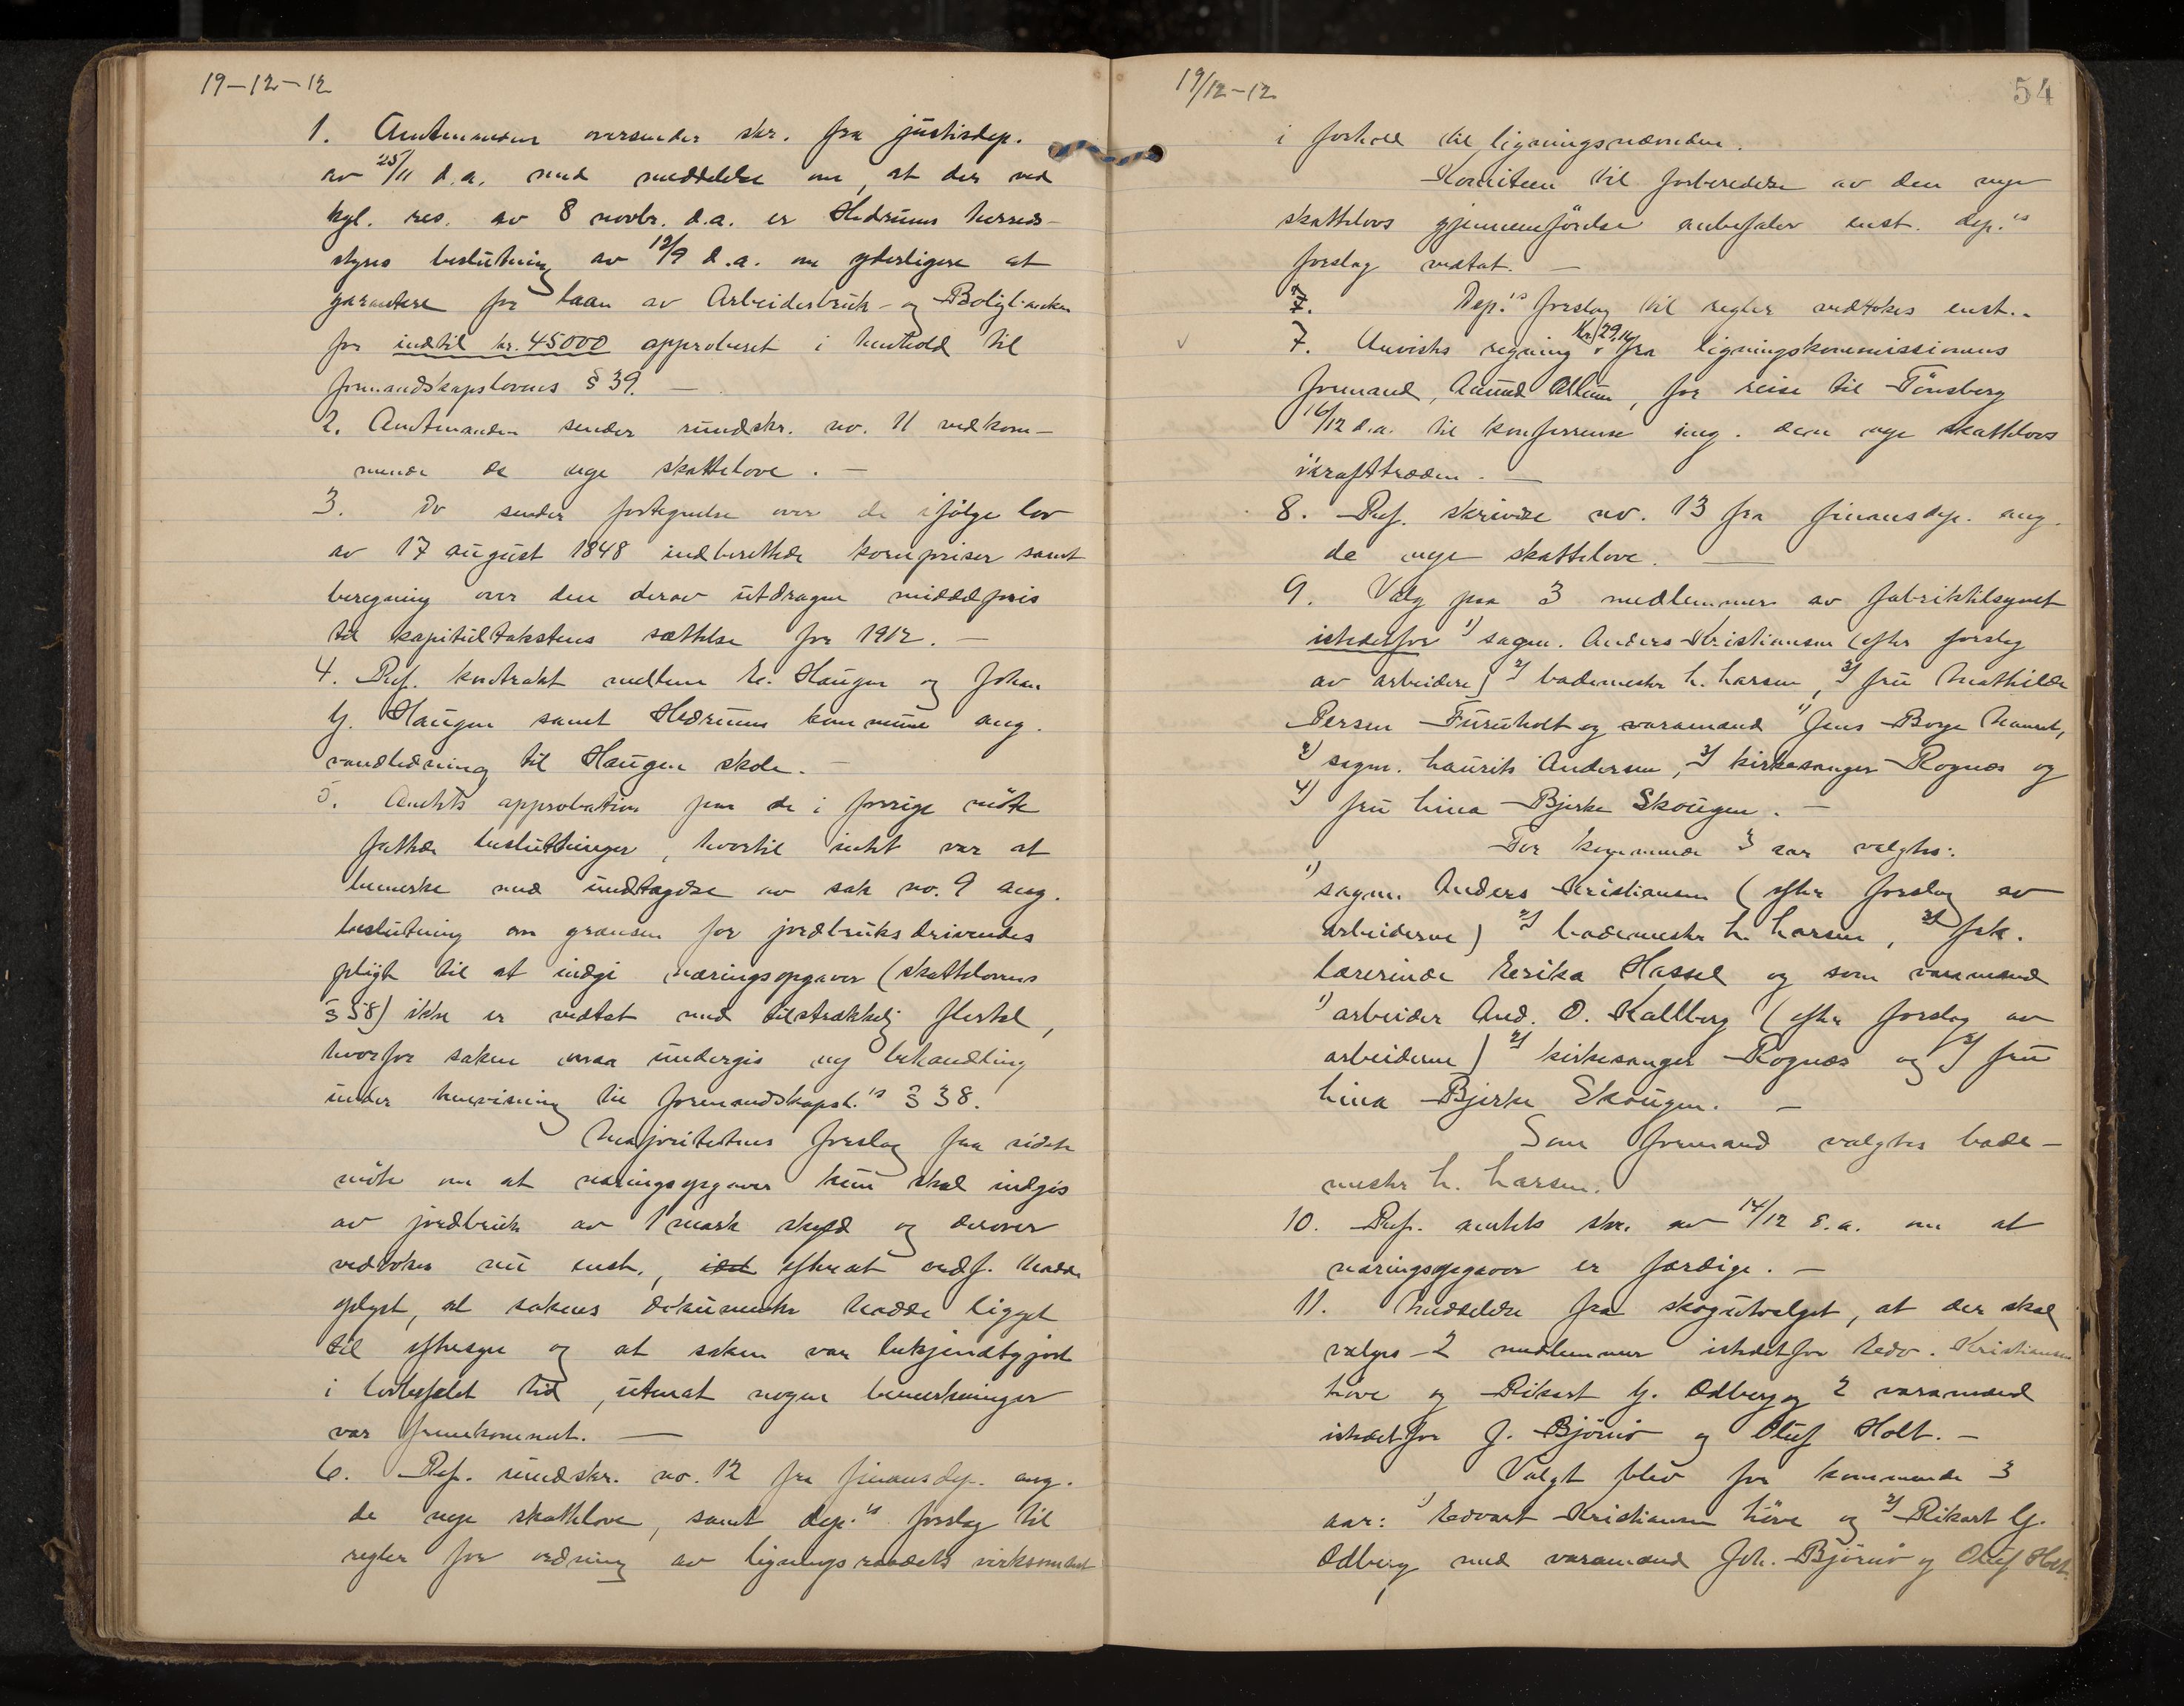 19-12-12
1. Amtmanden oversender skr. fra justisdep.
av 25/11 d.a. med meddelelse om, at der ved
kgl. res. av 8 novbr. d.a. er Hedrums herreds-
styres beslutning av 12/9 d.a. om yderligere at
garantere for laan av Arbeiderbruk- og Boligbanken
for indtil kr. 45000 approberet i henhold til
formandskapslovens § 39. —
2. Amtmanden sender rundskr. no. 11 vedkom-
mende de nye skattelove. —
3. Do sender fortegnelse over de ifølge lov
av 17 august 1848 indberettede kornpriser samt
beregning over den derav utdragne middelpris
til kapitultakstens sættelse for 1912. —
4. Ref. kontrakt mellem E. Haugen og Johan
G. Haugen samt Hedrums kommune ang.
vandledning til Haugen skole. —
5. Amtets approbation paa de i forrige möte
fattede beslutninger, hvortil intet var at
bemerke med undtagelse av sak no. 9 ang.
beslutning om grænsen for jordbruksdrivendes
pligt til at indgi næringsopgaver (skattelovens
§ 58) ikke er vedtat med tilstrækkelig flertal,
hvorfor saken maa undergis ny behandling
under henvisning til formandskapsl.'s § 38.
Majoritetens forslag fra sidste
möte om at næringsopgaver kun skal indgis
av jordbruk av 1 mark skyld og derover
vedtokes nu enst., efterat ordf. hadde
oplyst, at sakens dokumenter hadde ligget
til eftersyn og at saken var bekjendtgjort
i lovbefalet tid, utenat nogen bemerkninger
var fremkommet. —
6. Ref. rundskr. no. 12 fra finansdep. ang.
de nye skattelove, samt dep.'s forslag til
regler for ordning av ligningsraadets virksomhet
19/12-12
54
i forhold til ligningsnævnden.
Komiteen til forberedelse av den nye
skattelovs gjennemförelse anbefaler enst. dep.'s
forslag vedtat. —
7. Dep.'s forslag til regler vedtokes enst..
7. Anvistes regning kr. 29,16 fra ligningskommissionens
formand, Amund Allum, for reise til Tönsberg
16/12 d.a. til konferense ang. den nye skattelovs
ikrafttræden. —
8. Ref. skrivelse no. 13 fra finansdep. ang.
de nye skattelove. —
9. Valg paa 3 medlemmer av fabriktilsynet
istedetfor 1) sagm. Anders Kristiansen (efter forslag
av arbeidere) 2) bademester h. Larsen, 3) fru Mathilde
Persen Furuholt og varamænd 1) Jens Borge Nanset,
2) sagm. Laurits Andersen, 3) kirkesanger Rognæs og
4) fru Lina Bjerke Skougen. —
For kommende 3 aar valgtes:
1) sagm. Anders Kristiansen (efter forslag av
arbeiderne) 2) bademester h. Larsen, 3) frk.
lærerinde Erika Hassel og som varamænd
1) arbeider And. O. Kallberg (efter forslag av
arbeiderne) 2) kirkesanger Rognæs og 3) fru
Lina Bjerke Skougen. —
Som formand valgtes bade-
mester h. Larsen.
10. Ref. amtets skr. av 14/12 d.a. om at
næringsopgaver er færdige. —
11. Meddelelse fra skogutvalget, at der skal
vælges 2 medlemmer istedetfor Edv. Kristiansen
Löve og Rikart G. Odberg og 2 varamænd
istedetfor J. Björnö og Oluf Holt. —
Valgt blev for kommende 3
aar: 1) Edvart Kristiansen Löve og 2) Rikart G.
Odberg med varamænd Joh. Björnö og Oluf Holt.